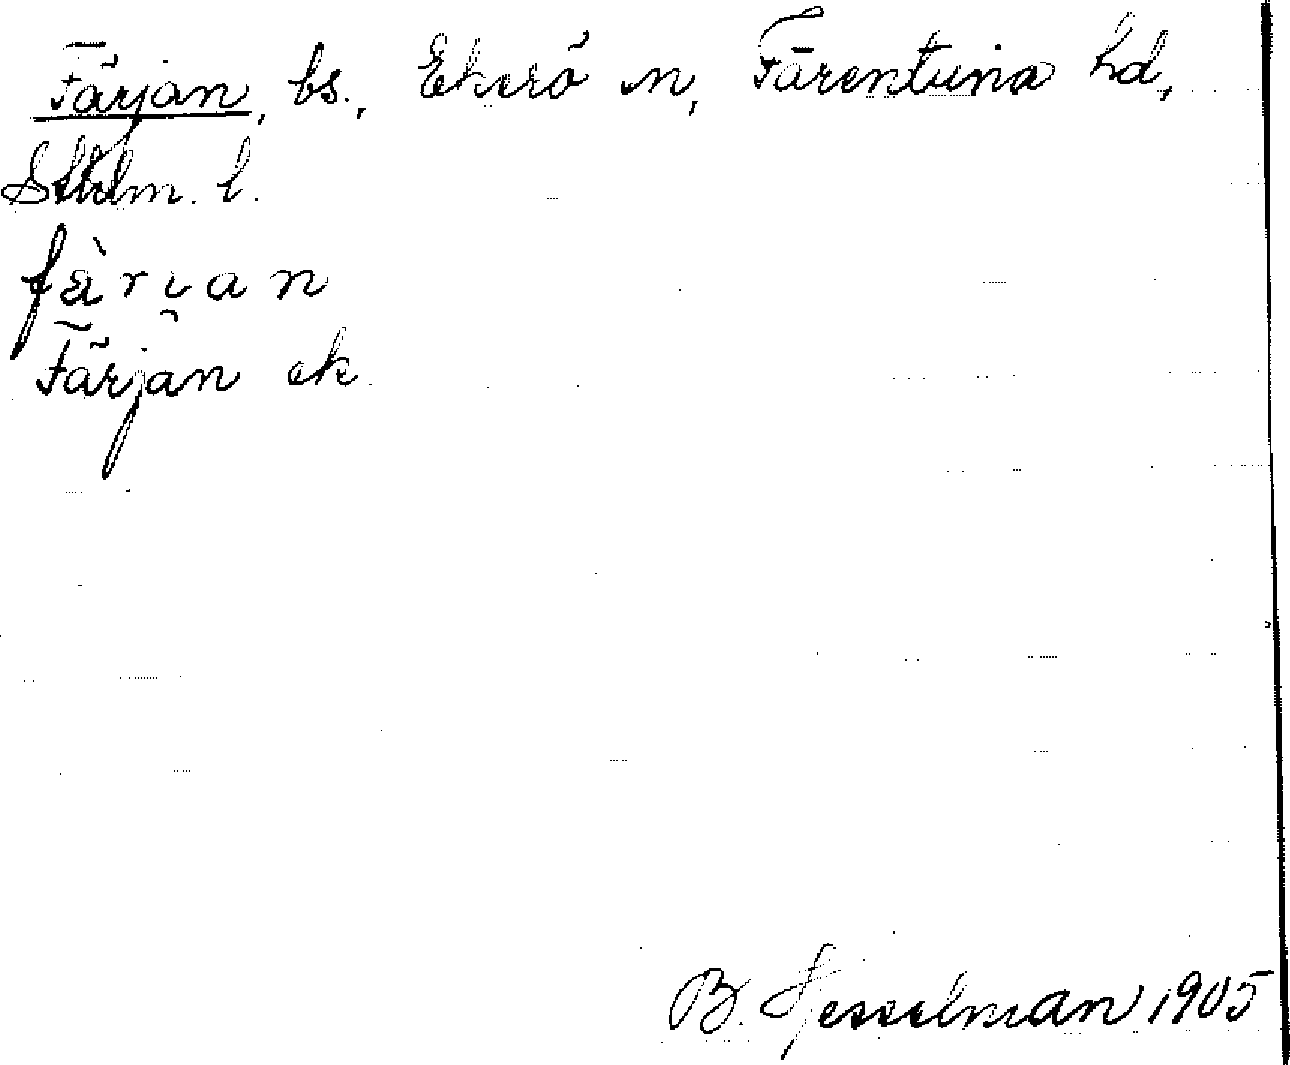 Färjan, bs., Ekerö sn, Färentuna hd,
Sthlm. l.
fàri̯an
Färjan ek.
B. Hesselman 1905